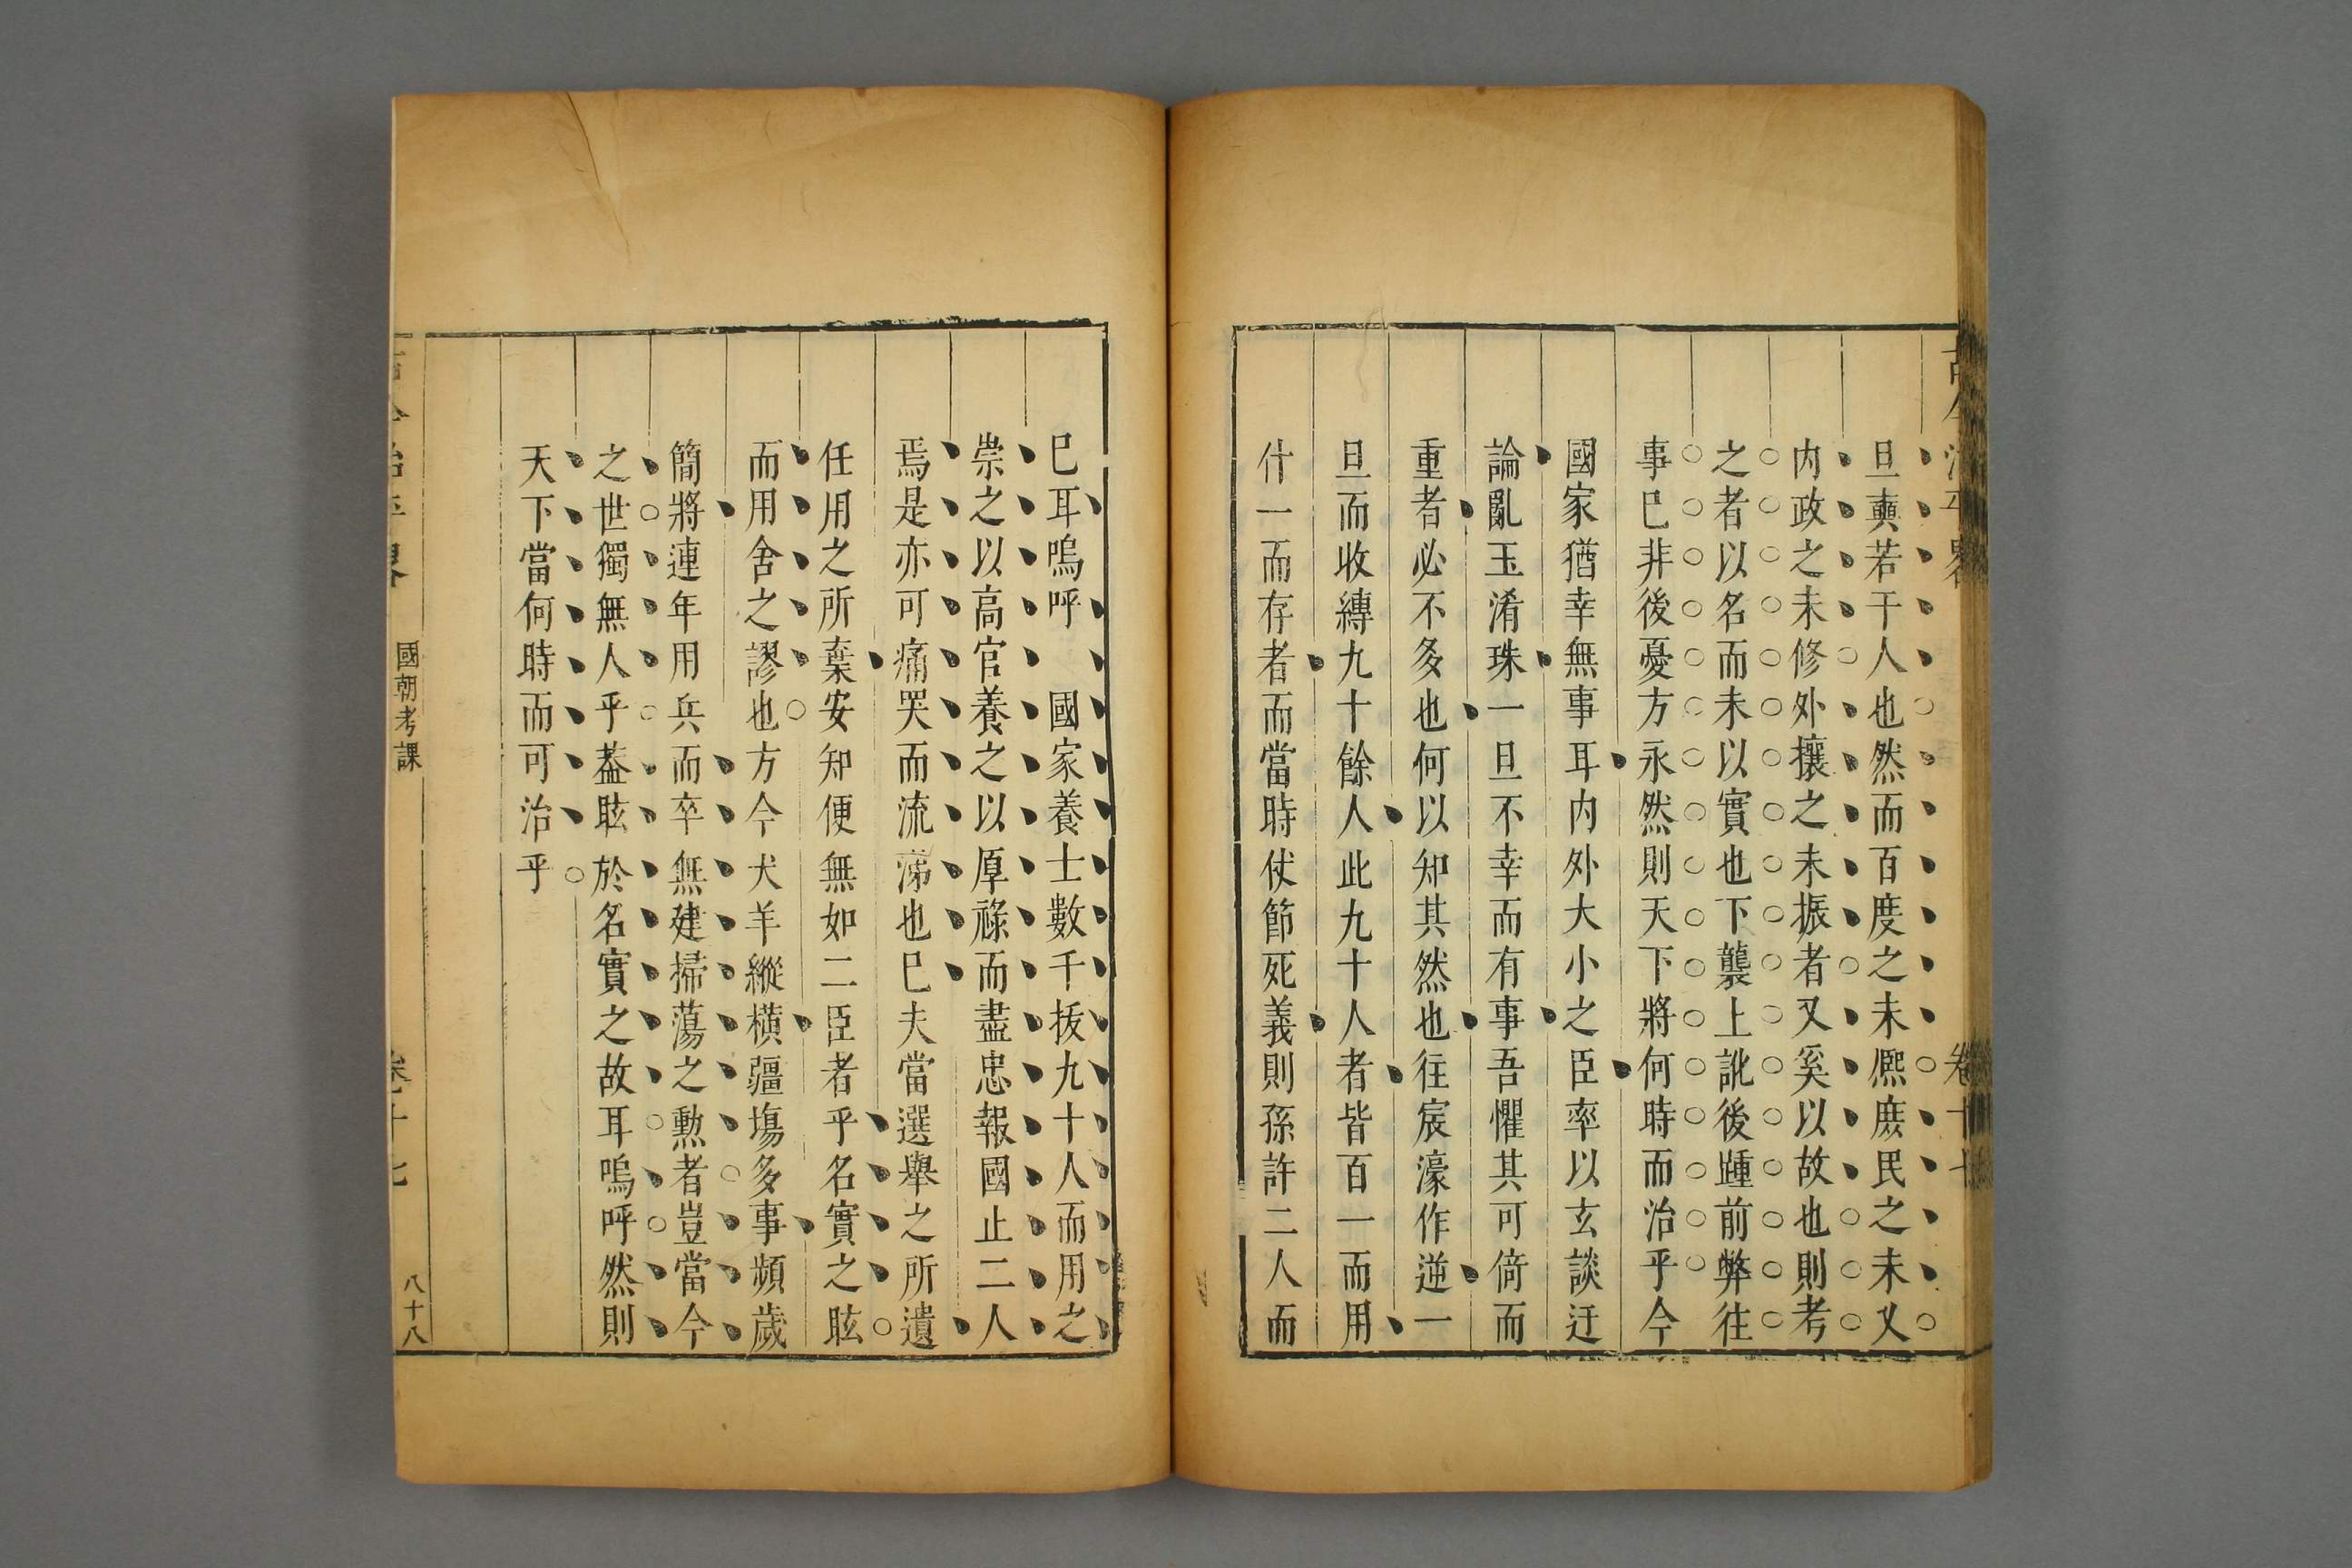 旦輿若干人也然而百度之未熈庶民之未乂
内政之未修外攘之未振者又奚以故也則考
之者以名而未以實也下襲上訛後踵前弊往
事巳非後憂方永然則天下將何時而治乎今
國家猶幸無事耳内外大小之臣率以玄談迂
論亂玉淆珠一旦不幸而有事吾懼其可倚而
重者必不多也何以知其然也往宸濠作逆一
旦而收縛九十餘人此九十人者皆百一而用
什一而存者而當時仗節死義則孫許二人而
巳耳嗚呼　國家養士數千拔九十人而用之
崇之以高官養之以厚祿而盡忠報國止二人
焉是亦可痛哭而流涕也巳夫當選舉之所遺
任用之所棄安知便無如二臣者乎名實之眩
而用舍之謬也方今犬羊縱橫疆塲多事頻歲
簡將連年用兵而卒無建掃蕩之勲者豈當今
之世獨無人乎葢眩於名實之故耳嗚呼然則
天下當何時而可治乎
古今治平畧
國朝考課
卷十七
八十八